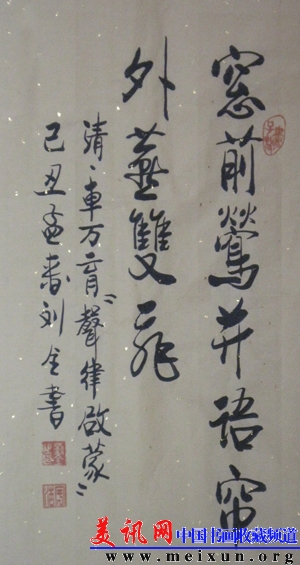 窓前鶯并語帘
外燕雙飛
清、車万育"聲律啟蒙"
己丑孟春刘全書
美讯网 中国书画收藏频道
www.meixun.org